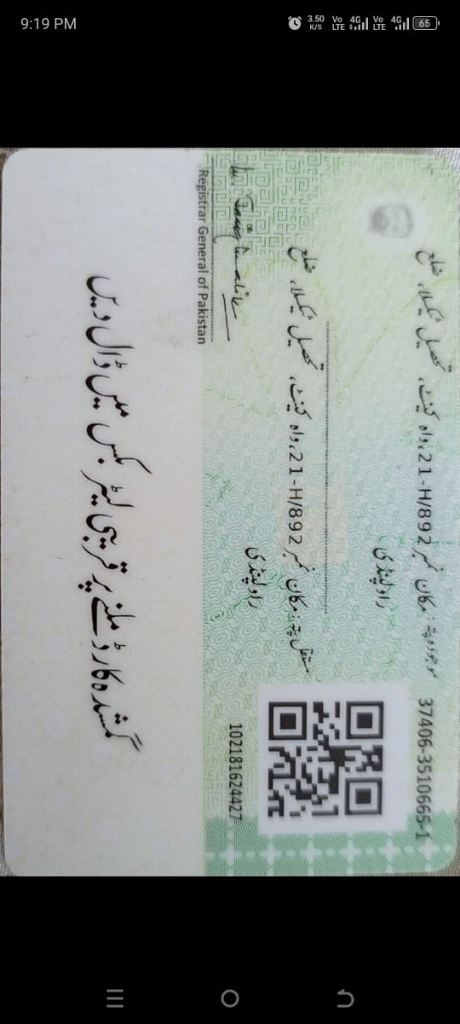 9:19 PM
3.50 K/S Vo LTE 4G Vo LTE 4G 65
37406-3510665-1
موجودہ پتہ: مکان نمبر 21-H/892، واہ کینٹ، تحصیل ٹیکسلا، ضلع
راولپنڈی
مستقل پتہ: مکان نمبر 21-H/892، واہ کینٹ، تحصیل ٹیکسلا، ضلع
راولپنڈی
102181624427
Registrar General of Pakistan
گمشدہ کارڈ ملنے پر قریبی لیٹر بکس میں ڈال دیں